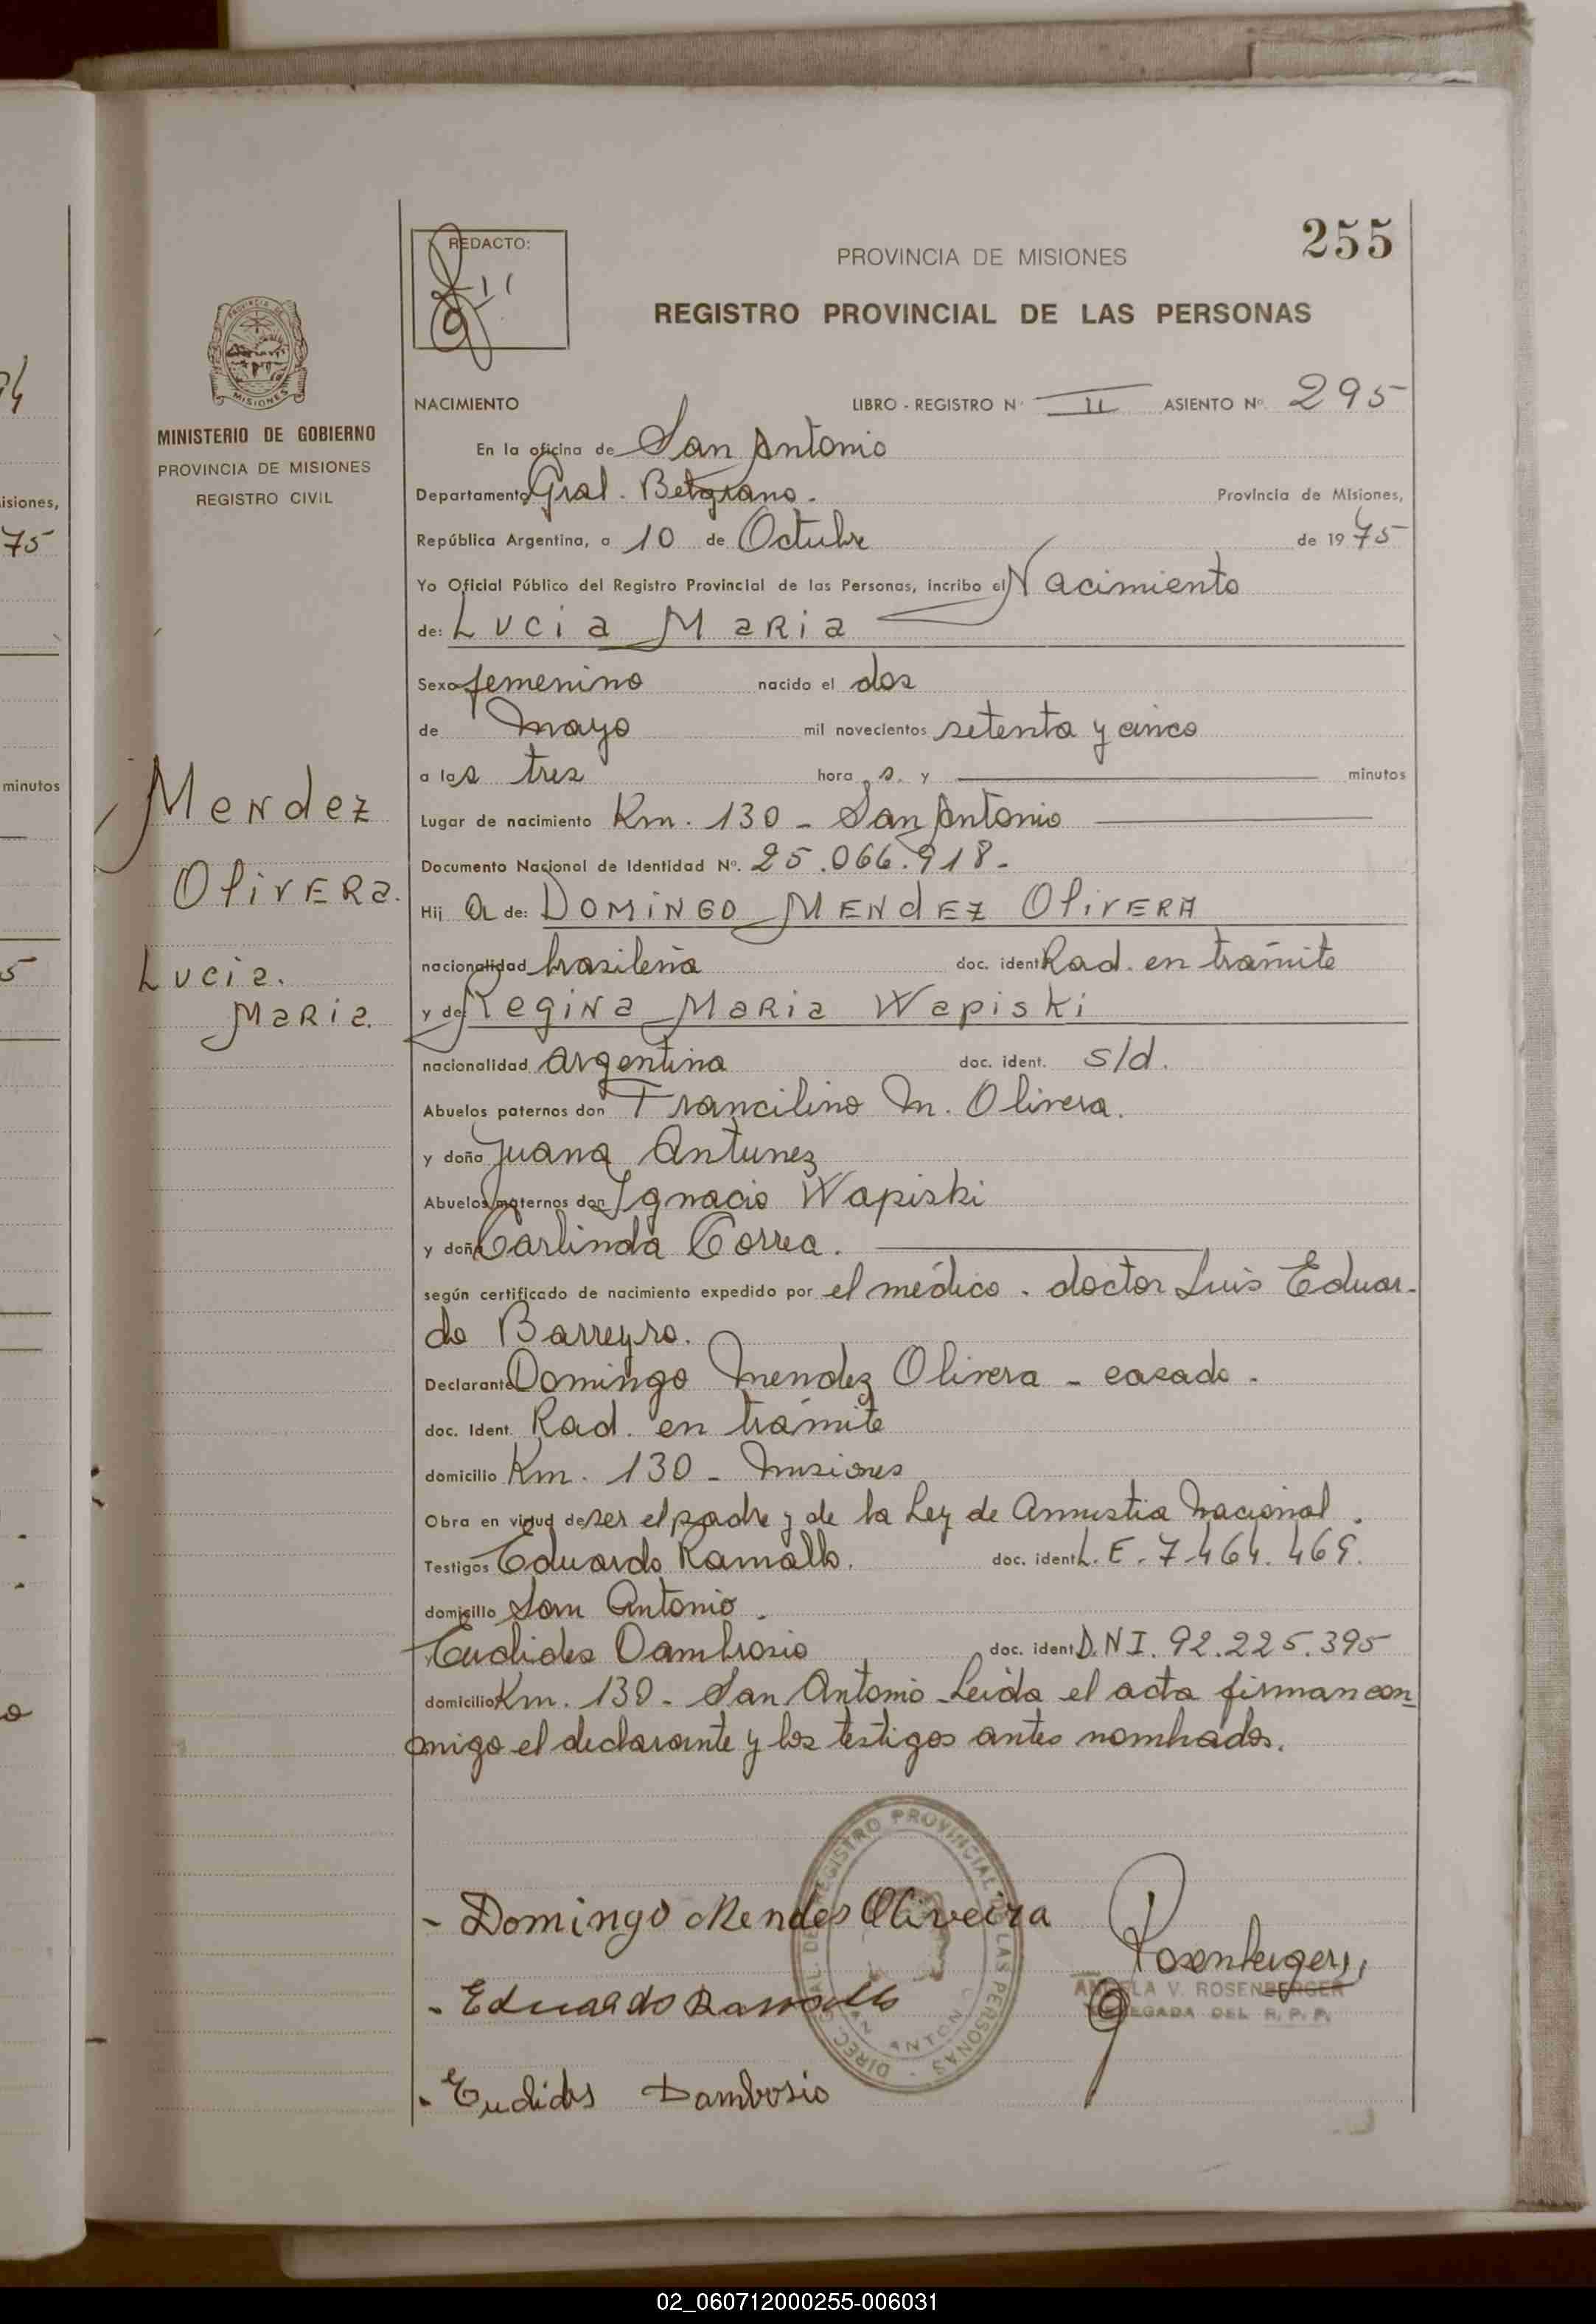 255
REDACTO:
PROVINCIA DE MISIONES
REGISTRO PROVINCIAL DE LAS PERSONAS
MINISTERIO DE GOBIERNO
PROVINCIA DE MISIONES
REGISTRO CIVIL
NACIMIENTO LIBRO - REGISTRO N° II ASIENTO N° 295
En la oficina de San Antonio
Departamento Gral. Belgrano. Provincia de Misiones,
República Argentina, a 10 de Octubre de 1975
Yo Oficial Público del Registro Provincial de las Personas, incribo el Nacimiento
de: Lucia Maria
Sexo femenino nacido el dos
de mayo mil novecientos setenta y cinco
a las tres hora s. y minutos
Lugar de nacimiento Km. 130 - San Antonio
Documento Nacional de Identidad N°. 25.066.918-
Hij a de: Domingo Mendez Olivera
nacionalidad brasileña doc. ident. Rad. en trámite
y de Regina Maria Wapiski
nacionalidad argentina doc. ident. s/d.
Abuelos paternos don Francilino M. Olivera.
y doña Juana Antunez
Abuelos maternos don Ignacio Wapiski
y doña Carlinda Correa.
según certificado de nacimiento expedido por el médico. doctor Luis Eduar-
do Barreyro.
Declarante Domingo Mendez Olivera - casado.
doc. Ident. Rad. en trámite
domicilio Km. 130 - Misiones
Obra en virtud de ser el padre y de la Ley de Amnistia Nacional.
Testigos Eduardo Ramallo. doc. ident. L.E. 7.464.469.
domicilio San Antonio.
Euclides Dambrosio doc. ident. D.N I. 92.225.395
domicilio Km. 130 - San Antonio - Leída el acta firman con=
migo el declarante y los testigos antes nombrados.
Mendez
Olivera.
Lucia.
Maria.
- Domingo Mendes Oliveira
- Eduardo Ramallo
- Euclides Dambrosio
Rosenberger
ANGELA V. ROSENBERGER
DELEGADA DEL R. P. P.
DIREC. GRAL. DEL REGISTRO PROVINCIAL DE LAS PERSONAS
SAN ANTONIO
isiones,
75
minutos
02_060712000255-006031